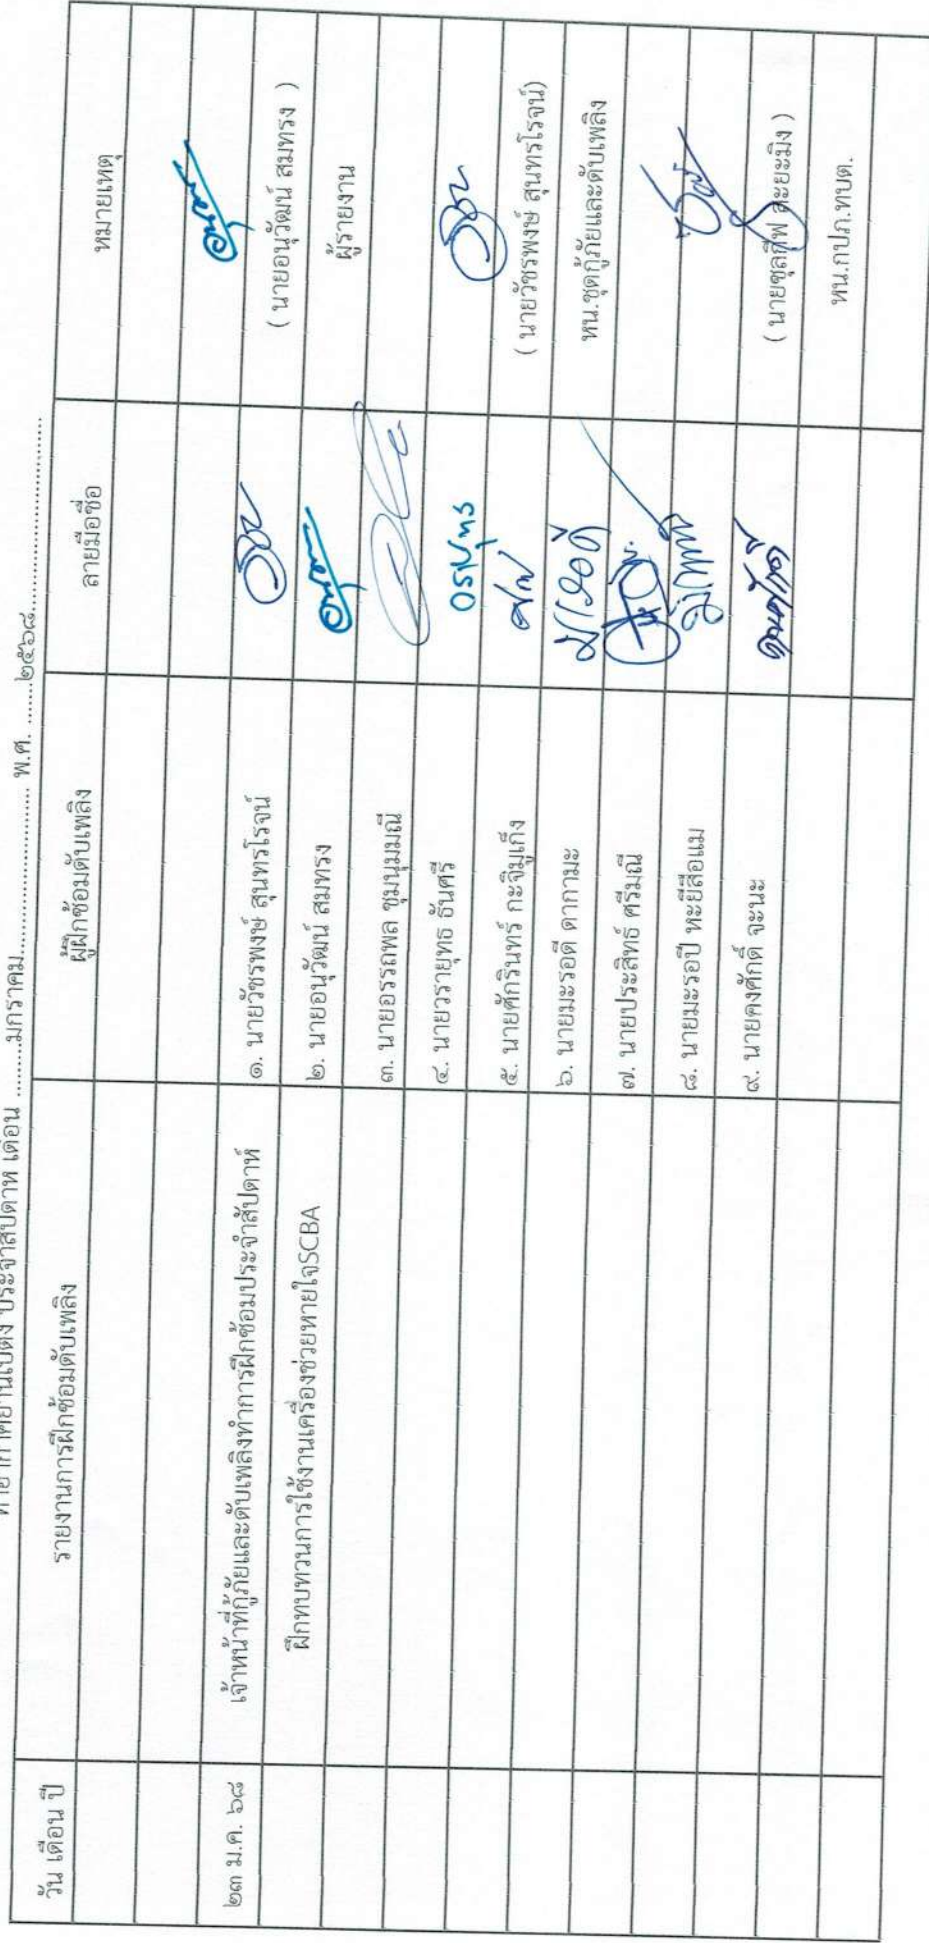 ท่าอากาศยานเบตง ประจำสัปดาห์ เดือน ..........มกราคม.......................... พ.ศ. .......๒๕๖๘.......................................
วัน เดือน ปี รายงานการฝึกซ้อมดับเพลิง ผู้ฝึกซ้อมดับเพลิง ลายมือชื่อ หมายเหตุ
๒๓ ม.ค. ๖๘ เจ้าหน้าที่กู้ภัยและดับเพลิงทำการฝึกซ้อมประจำสัปดาห์ ๑. นายวัชรพงษ์ สุนทรโรจน์ ( นายอนุวัฒน์ สมทรง )
ฝึกทบทวนการใช้งานเครื่องช่วยหายใจSCBA ๒. นายอนุวัฒน์ สมทรง ผู้รายงาน
๓. นายอรรถพล ชุมนุมมณี
๔. นายวรายุทธ ธันศรี วรายุทธ
๕. นายศักรินทร์ กะจิมูเก็ง ( นายวัชรพงษ์ สุนทรโรจน์)
๖. นายมะรอดี ดากามะ มะรอดี หน.ชุดกู้ภัยและดับเพลิง
๗. นายประสิทธ์ ศรีมณี
๘. นายมะรอปี หะยีสือแม
๙. นายคงศักดิ์ จะนะ ( นายซุลกีฟ สะยะมิง )
หน.กปภ.ทบต.